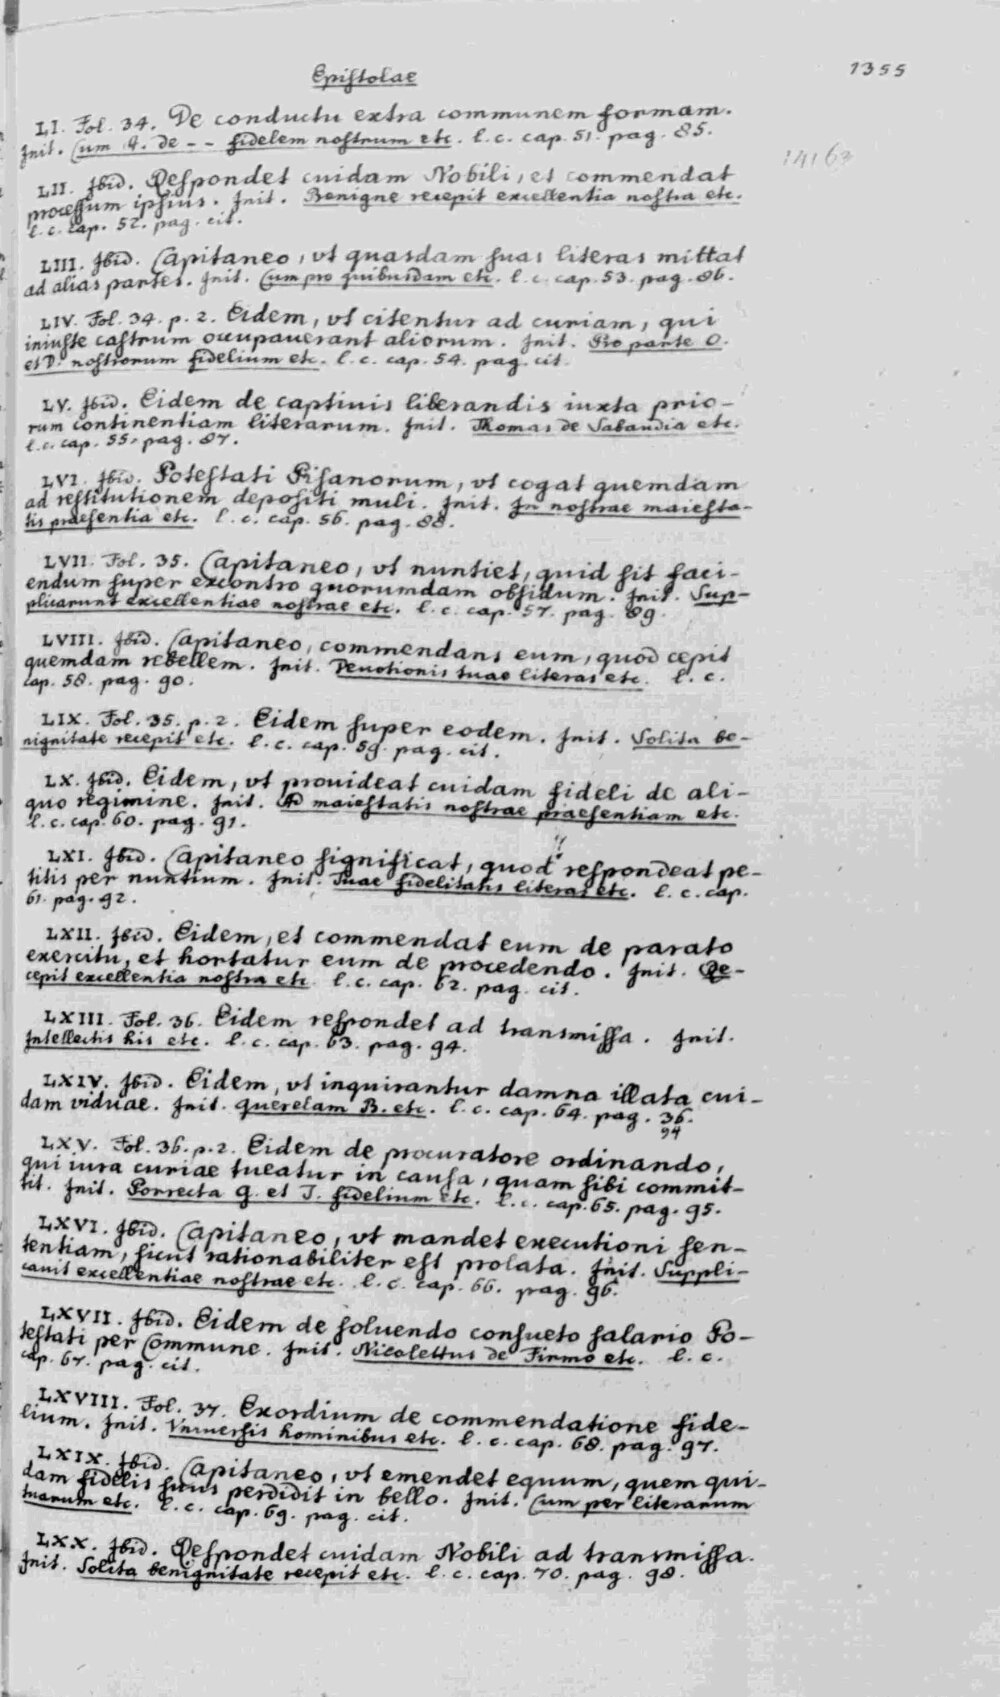 Epistolae
1355
LI. Fol. 34. De conductu extra communem formam.
Init. Cum A. de - - fidelem nostrum etc. l. c. cap. 51. pag. 85.
14163
LII. Ibid. Respondet cuidam Nobili, et commendat
processum ipsius. Init. Benigne recepit excellentia nostra etc.
l. c. cap. 52. pag. cit.
LIII. Ibid. Capitaneo, vt quasdam suas literas mittat
ad alias partes. Init. Cum pro quibusdam etc. l. c. cap. 53. pag. 86.
LIV. Fol. 34. p. 2. Eidem, vt citentur ad curiam, qui
iniuste castrum occupauerant aliorum. Init. Pro parte O.
et D. nostrorum fidelium etc. l. c. cap. 54. pag. cit.
LV. Ibid. Eidem de captiuis liberandis iuxta prio-
rum continentiam literarum. Init. Thomas de Sabaudia etc.
l. c. cap. 55. pag. 87.
LVI. Ibid. Potestati Pisanorum, vt cogat quemdam
ad restitutionem depositi muli. Init. In nostrae maiesta-
tis praesentia etc. l. c. cap. 56. pag. 88.
LVII. Fol. 35. Capitaneo, vt nuntiet, quid sit faci-
endum super excontro quorumdam obsidum. Init. Sup-
plicarunt excellentiae nostrae etc. l. c. cap. 57. pag. 89.
LVIII. Ibid. Capitaneo, commendans eum, quod cepit
quemdam rebellem. Init. Deuotionis tuae literas etc. l. c.
cap. 58. pag. 90.
LIX. Fol. 35. p. 2. Eidem super eodem. Init. Solita be-
nignitate recepit etc. l. c. cap. 59. pag. cit.
LX. Ibid. Eidem, vt prouideat cuidam fideli de ali-
quo regimine. Init. Ad maiestatis nostrae praesentiam etc.
l. c. cap. 60. pag. 91.
LXI. Ibid. Capitaneo significat, quod respondeat pe-
titis per nuntium. Init. Tuae fidelitatis literas etc. l. c. cap.
61. pag. 92.
LXII. Ibid. Eidem, et commendat eum de parato
exercitu, et hortatur eum de procedendo. Init. Re-
cepit excellentia nostra etc. l. c. cap. 62. pag. cit.
LXIII. Fol. 36. Eidem respondet ad transmissa. Init.
Intellectis his etc. l. c. cap. 63. pag. 94.
LXIV. Ibid. Eidem, vt inquirantur damna illata cui-
dam viduae. Init. Querelam B. etc. l. c. cap. 64. pag. 36.
94
LXV. Fol. 36. p. 2. Eidem de procuratore ordinando,
qui iura curiae tueatur in causa, quam sibi commit-
tit. Init. Porrecta G. et J. fidelium etc. l. c. cap. 65. pag. 95.
LXVI. Ibid. Capitaneo, vt mandet executioni sen-
tentiam, sicut rationabiliter est prolata. Init. Suppli-
cauit excellentiae nostrae etc. l. c. cap. 66. pag. 96.
LXVII. Ibid. Eidem de soluendo consueto salario Po-
testati per Commune. Init. Nicolettus de Firmo etc. l. c.
cap. 67. pag. cit.
LXVIII. Fol. 37. Exordium de commendatione fide-
lium. Init. Vniuersis hominibus etc. l. c. cap. 68. pag. 97.
LXIX. Ibid. Capitaneo, vt emendet equum, quem qui-
dam fidelis suus perdidit in bello. Init. Cum per literarum
tuarum etc. l. c. cap. 69. pag. cit.
LXX. Ibid. Respondet cuidam Nobili ad transmissa.
Init. Solita benignitate recepit etc. l. c. cap. 70. pag. 98.